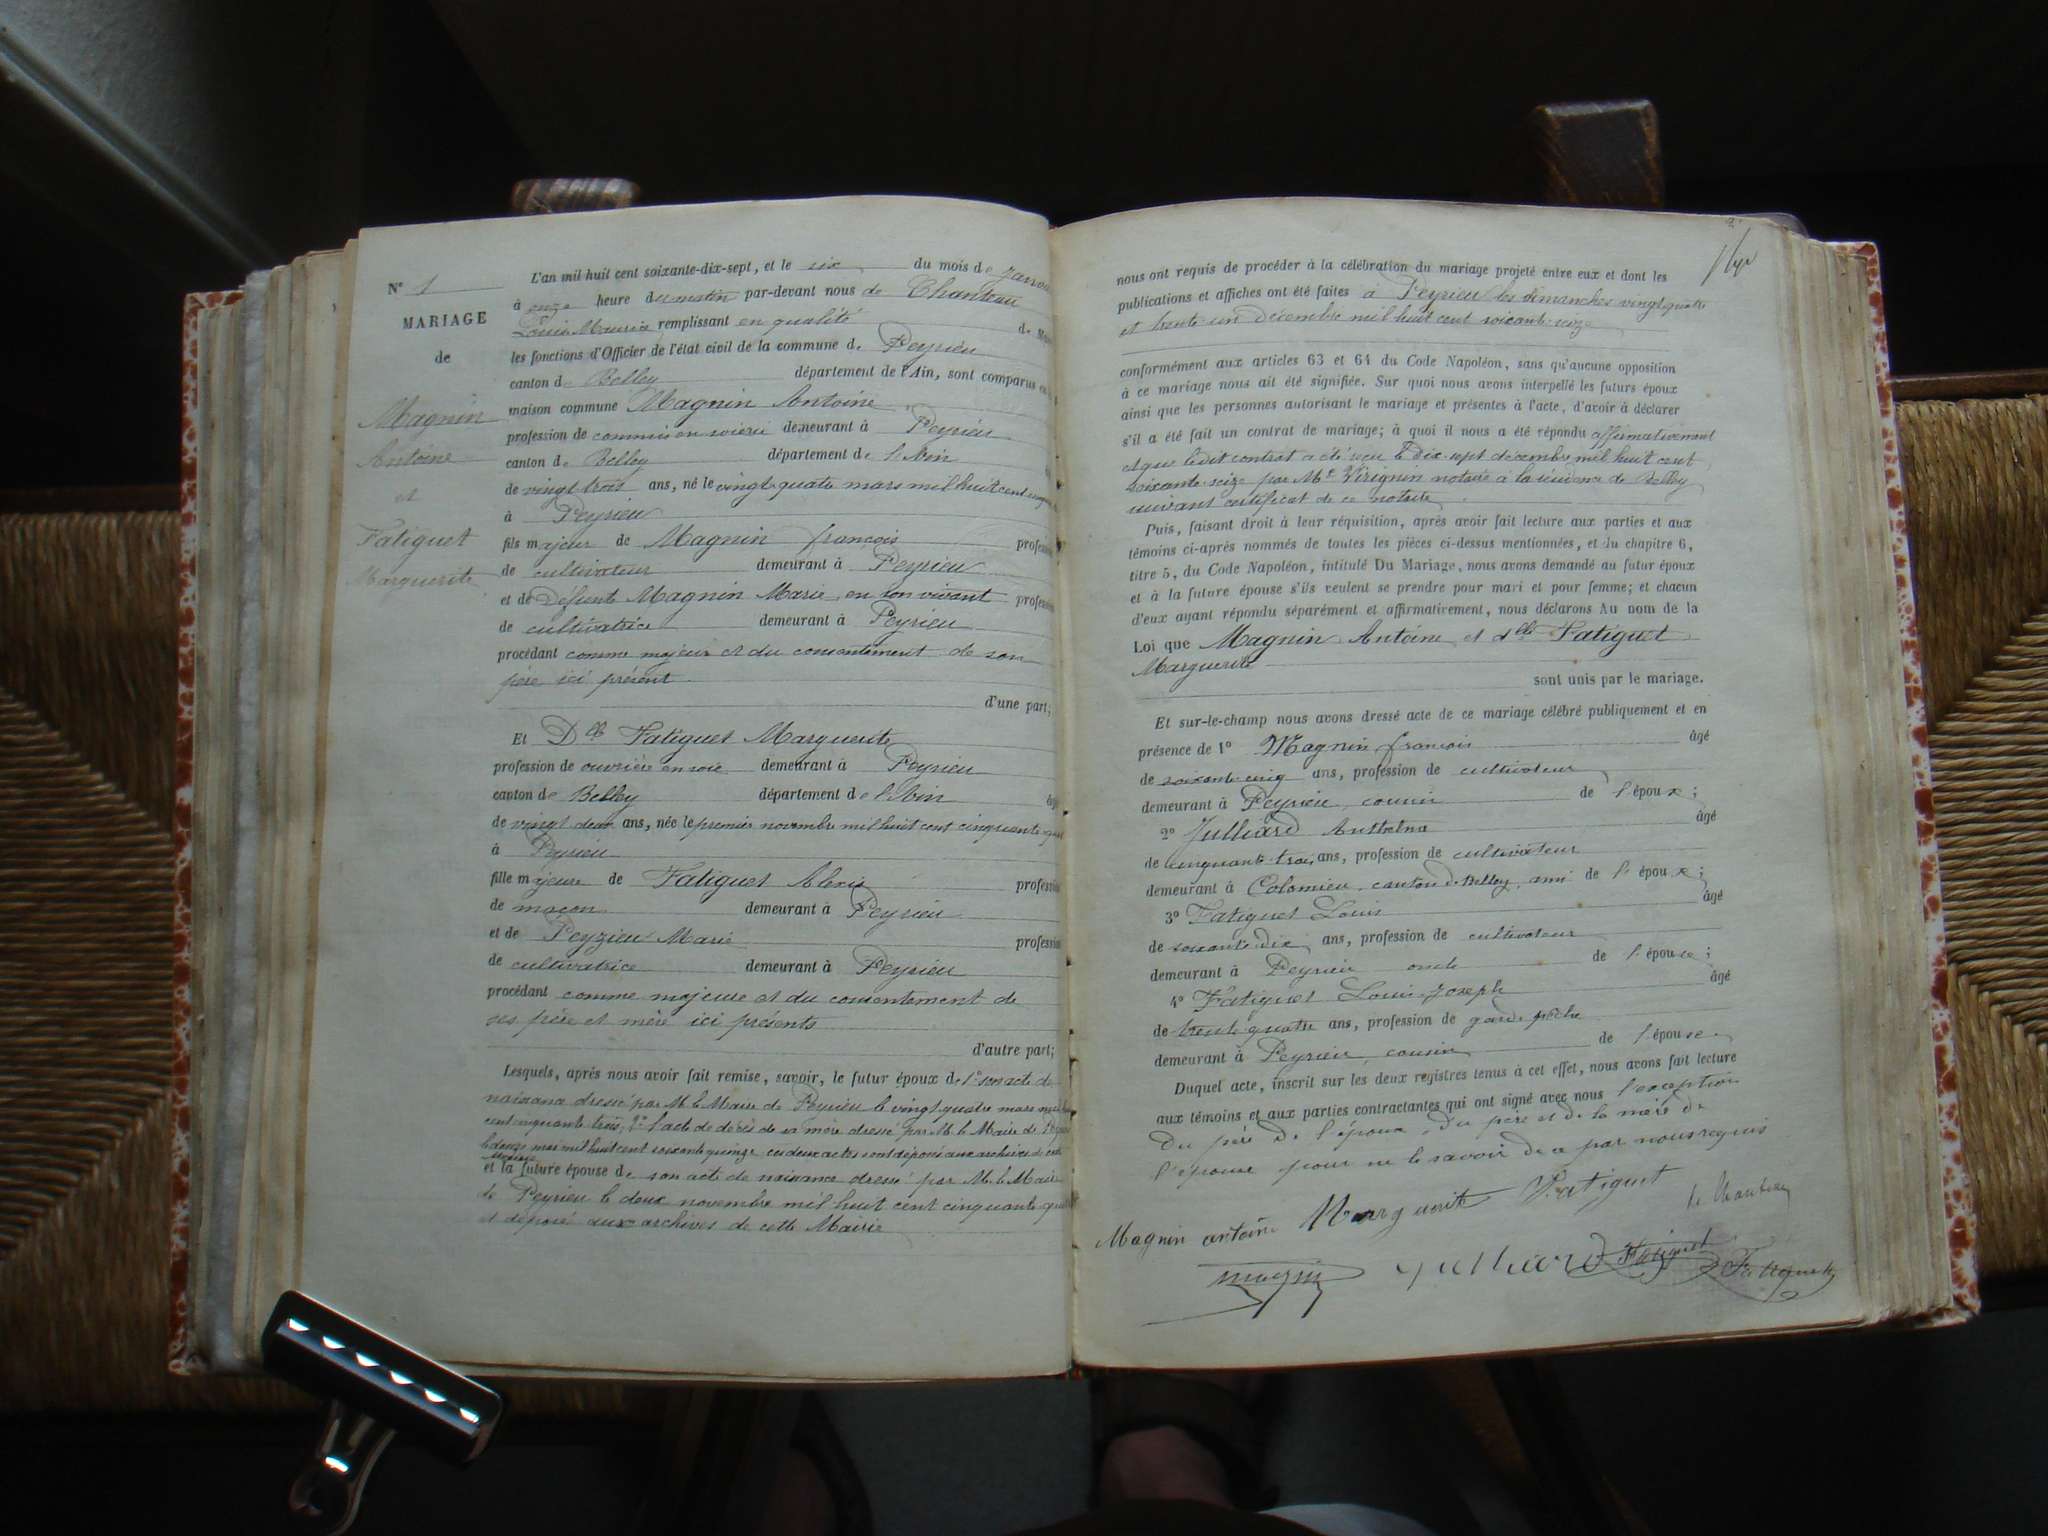 N° 1
MARIAGE
de
Magnin
Antoine
et
Fatiguet
Marguerite
L'an mil huit cent soixante-dix-sept, et le six du mois de
à onze heure du matin par-devant nous de Chanteau
Louis Maurice remplissant en qualité de
les fonctions d'Officier de l'état civil de la commune de Peyrieu
canton de Belley département de l'Ain, sont comparus en
maison commune Magnin Antoine
profession de commis en soierie demeurant à Peyrieu
canton de Belley département de l'Ain
de vingt trois ans, né le vingt quatre mars mil huit cent
à Peyrieu
fils majeur de Magnin françois profession
de cultivateur demeurant à Peyrieu
et de Défunte Magnin Marie en son vivant profession
de cultivatrice demeurant à Peyrieu
procédant comme majeur et du consentement de son
père ici présent
d'une part;
Et Dlle Fatiguet Marguerite
profession de ouvrière en soie demeurant à Peyrieu
canton de Belley département de l'Ain âgé
de vingt deux ans, née le premier novembre mil huit cent cinquante
à Peyrieu
fille majeure de Fatiguet Alexis profession
de maçon demeurant à Peyrieu
et de Peyzieu Marie profession
de cultivatrice demeurant à Peyrieu
procédant comme majeure et du consentement de
ses père et mère ici présents
d'autre part;
Lesquels, après nous avoir fait remise, savoir, le futur époux de 1° son acte de
naissance dressé par M. le Maire de Peyrieu le vingt quatre mars mil
cent cinquante trois, 2° l'acte de décès de sa mère dressé par M. le Maire de
le douze mai mil huit cent soixante quinze ces deux actes sont déposés aux archives de cette
mairie
et la future épouse de son acte de naissance dressé par M. le Maire
de Peyrieu le deux novembre mil huit cent cinquante
et déposé aux archives de cette Mairie
nous ont requis de procéder à la célébration du mariage projeté entre eux et dont les
publications et affiches ont été faites à Peyrieu les dimanches vingt quatre
et trente un Décembre mil huit cent soixante seize
conformément aux articles 63 et 64 du Code Napoléon, sans qu'aucune opposition
à ce mariage nous ait été signifiée. Sur quoi nous avons interpellé les futurs époux
ainsi que les personnes autorisant le mariage et présentes à l'acte, d'avoir à déclarer
s'il a été fait un contrat de mariage; à quoi il nous a été répondu affirmativement
et que ledit contrat a été reçu le dix sept décembre mil huit cent
soixante seize par Me Virignin notaire à la résidence de Belley
suivant certificat de ce notaire
Puis, faisant droit à leur réquisition, après avoir fait lecture aux parties et aux
témoins ci-après nommés de toutes les pièces ci-dessus mentionnées, et du chapitre 6,
titre 5, du Code Napoléon, intitulé Du Mariage, nous avons demandé au futur époux
et à la future épouse s'ils veulent se prendre pour mari et pour femme; et chacun
d'eux ayant répondu séparément et affirmativement, nous déclarons Au nom de la
Loi que Magnin Antoine et dlle Fatiguet
Marguerite
sont unis par le mariage.
Et sur-le-champ nous avons dressé acte de ce mariage célébré publiquement et en
présence de 1° Magnin françois âgé
de soixante cinq ans, profession de cultivateur
demeurant à Peyrieu, cousin de l'époux;
2° Julliard Anthelme âgé
de cinquante trois ans, profession de cultivateur
demeurant à Colomieu, canton de Belley, ami de l'époux;
3° Fatiguet Louis âgé
de soixante dix ans, profession de cultivateur
demeurant à Peyrieu oncle de l'épouse;
4° Fatiguet Louis Joseph âgé
de trente quatre ans, profession de garde pêche
demeurant à Peyrieu, cousin de l'épouse
Duquel acte, inscrit sur les deux registres tenus à cet effet, nous avons fait lecture
aux témoins et aux parties contractantes qui ont signé avec nous l'exception
du père de l'époux, du père et de la mère de
l'épouse pour ne le savoir de ce par nous requis
Magnin antoine Marguerite Fatiguet de Chanteau
magnin Julliard Fatiguet Fatiguet